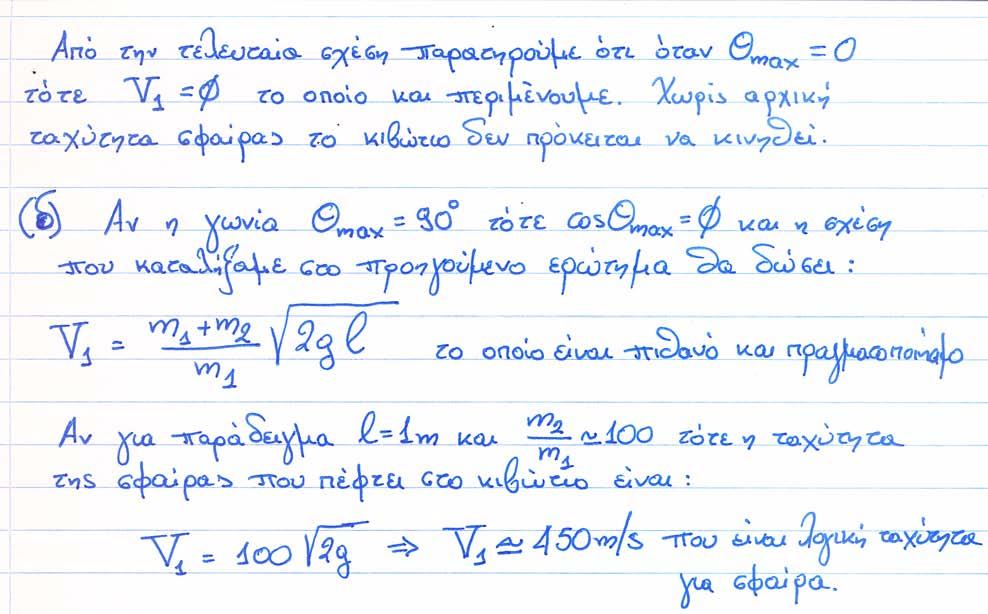 Από την τελευταία σχέση παρατηρούμε ότι όταν Θmax = 0
τότε V₁ = ∅ το οποίο και περιμένουμε. Χωρίς αρχική
ταχύτητα σφαίρας το κιβώτιο δεν πρόκειται να κινηθεί.
(δ) Αν η γωνία Θmax = 90° τότε cosΘmax = ∅ και η σχέση
που καταλήξαμε στο προηγούμενο ερώτημα θα δώσει:
V₁ = (m₁+m₂)/m₁ √(2gl) το οποίο είναι πιθανό και πραγματοποιήσιμο
Αν για παράδειγμα l=1m και m₂/m₁ ≃ 100 τότε η ταχύτητα
της σφαίρας που πέφτει στο κιβώτιο είναι:
V₁ = 100 √2g ⇒ V₁ ≃ 450 m/s που είναι λογική ταχύτητα
για σφαίρα.